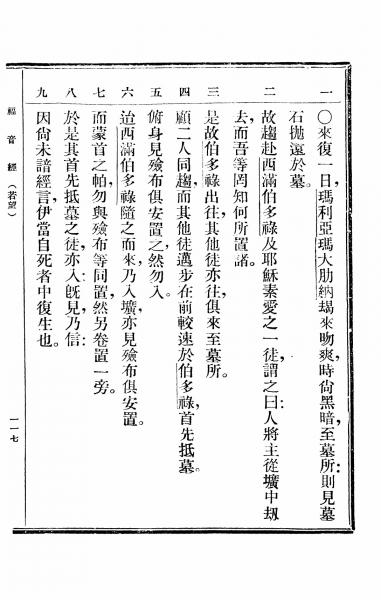 一 〇來復一日，瑪利亞瑪大肋納趨來吻爽，時尙黑暗，至墓所；則見墓
石拋遠於墓。
二 故趨赴西滿伯多祿及耶穌素愛之一徒，謂之曰：人將主從壙中刼
去，而吾等罔知何所置諸。
三 是故伯多祿出往，其他徒亦往，俱來至墓所。
四 顧二人同趨，而其他徒邁步在前，較速於伯多祿，首先抵墓。
五 俯身見殮布俱安置之，然勿入。
六 迨西滿伯多祿隨之而來，乃入壙，亦見殮布俱安置。
七 而蒙首之帕，勿與殮布等同置，然另卷置一旁。
八 於是其首先抵墓之徒亦入，旣見乃信：
九 因尙未諳經言，伊當自死者中復生也。
福音經（若望）
一一七